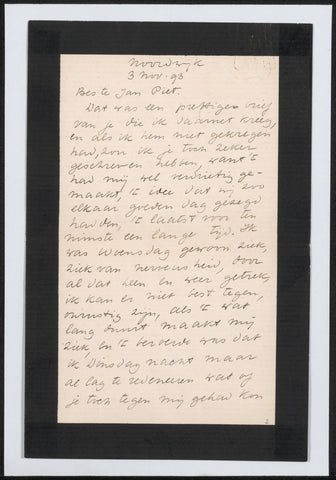 Noordwijk
3 Nov. 93
Beste Jan Piet.
Dat was een prettige brief
van je die ik daarnet kreeg,
en als ik hem niet gekregen
had, zou ik je toch zeker
geschreven hebben, want 't
had mij wel verdrietig ge-
maakt, 't idee dat wij zoo
elkaar goeden dag gezegd
hadden, 't laatst voor ten
minste een lange tijd. Ik
was Woensdag gewoon ziek,
ziek van nerveusheid, door
al dat heen en weer getrek,
ik kan er niet best tegen,
onrustig zijn, als 't wat
lang duurt maakt mij
ziek, en 't beroerds was dat
ik Dinsdag nacht maar
al lag te redeneeren wat of
je toch tegen mij gehad kon